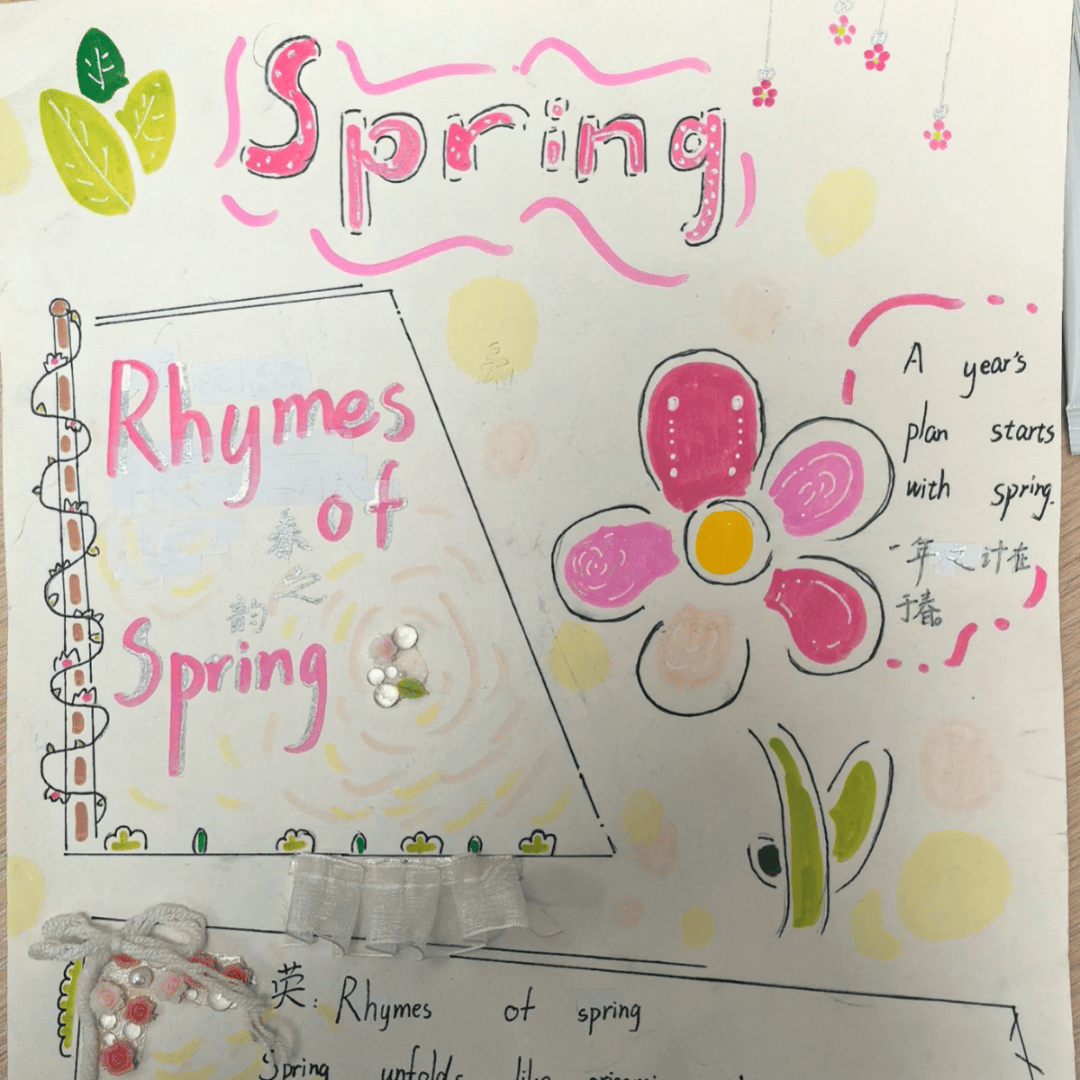 Spring
Rhymes
of
春
之
韵
Spring
A year's
plan starts
with spring.
一年之计在
于春。
英: Rhymes of spring
Spring unfolds like